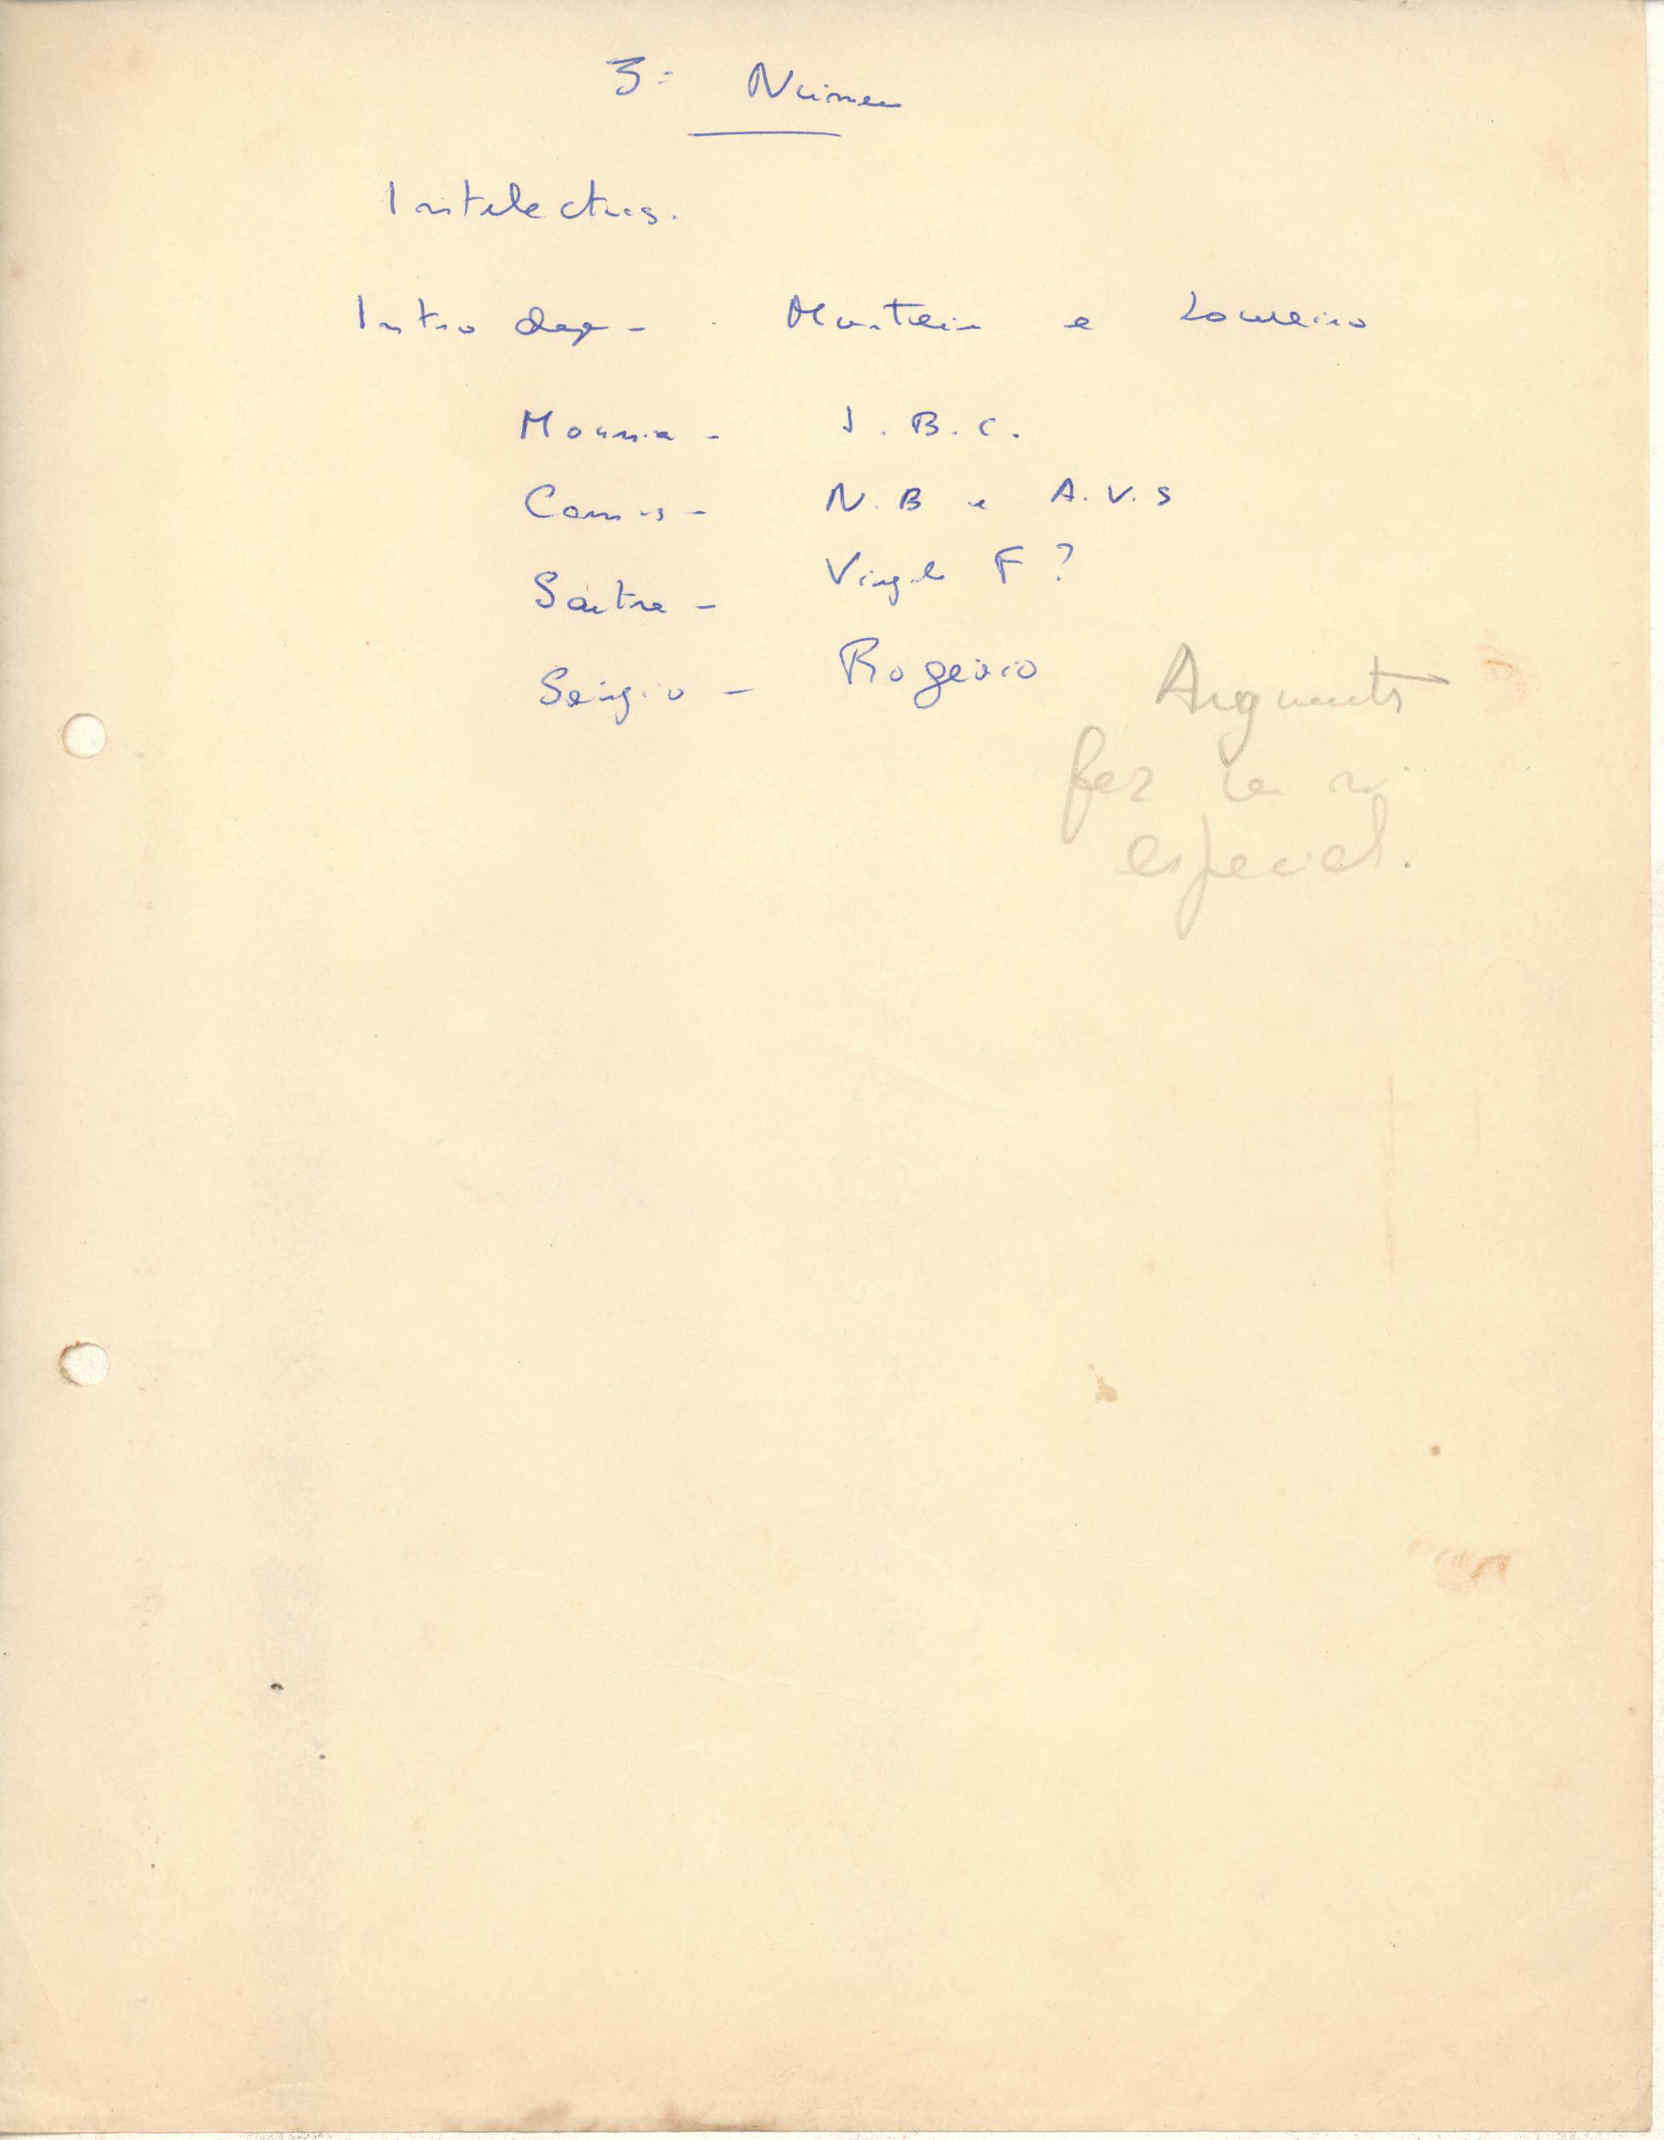 3º Número
Intelectuais.
Introdução - Monteiro e Loureiro
Mounier - J. B. C.
Camus - N. B e A. V. S
Sartre - Virgílio F ?
Sérgio - Rogério
Arguments
fez um nº
especial.